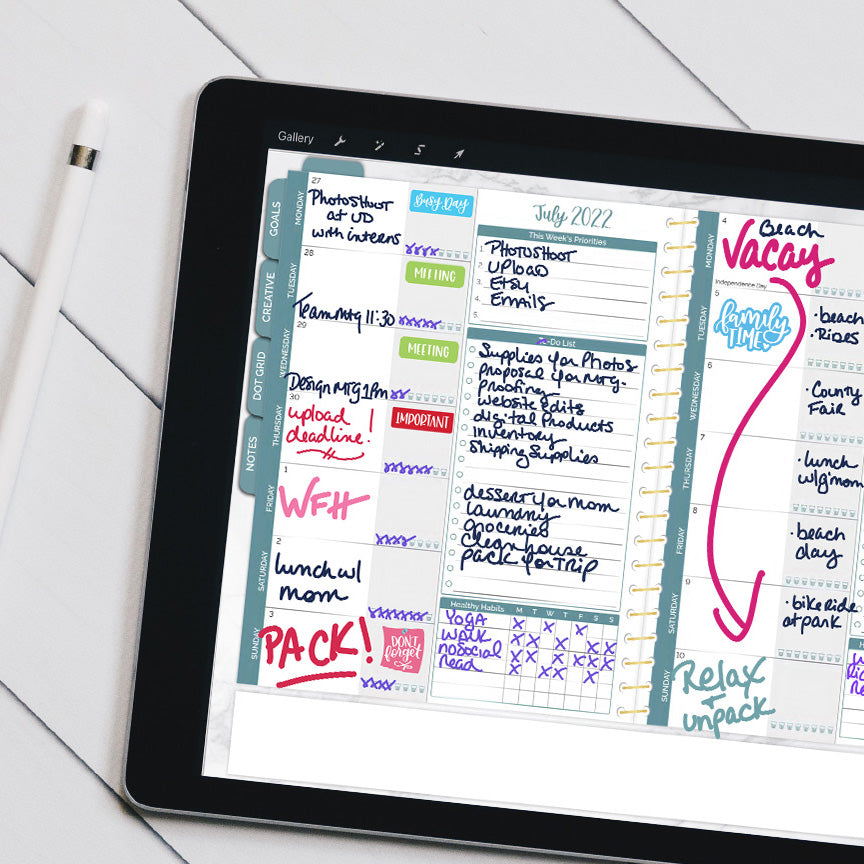 Gallery
S
GOALS
CREATIVE
DOT GRID
NOTES
MONDAY
27
PHOTOSHOOT
at UD
with interns
Busy Day
TUESDAY
28
MEETING
Team Mtg 11:30
WEDNESDAY
29
MEETING
Design MTG 1pm
THURSDAY
30
upload
deadline!
IMPORTANT
FRIDAY
1
WFH
SATURDAY
2
lunch w/
mom
SUNDAY
3
PACK!
DON'T
forget
July 2022
This Week's Priorities
1. PHOTOSHOOT
2. UPLOAD
3. ETSY
4. EMAILS
5.
To-Do List
Supplies for Photos
proposal for mtg.
proofing
website edits
digital Products
inventory
Shipping Supplies
dessert for mom
laundry
groceries
clean house
pack for TRIP
Healthy Habits M T W T F S S
YOGA X X X
WALK X X X X X
no Social X X X X X
Read X X X X
MONDAY
4
Beach
Vacay
Independence Day
TUESDAY
5
family
TIME
• beach
• Rides
WEDNESDAY
6
• County
Fair
THURSDAY
7
• lunch
w/g'mom
FRIDAY
8
• beach
day
SATURDAY
9
• bike Ride
at park
SUNDAY
10
Relax
+
unpack